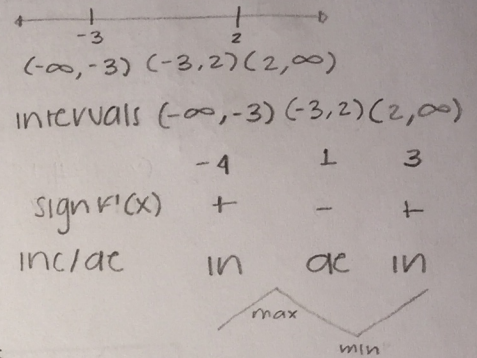 -3 2
(-∞,-3) (-3,2) (2,∞)
intervals (-∞,-3) (-3,2) (2,∞)
-4 1 3
sign f'(x) + - +
inc/de in de in
max
min